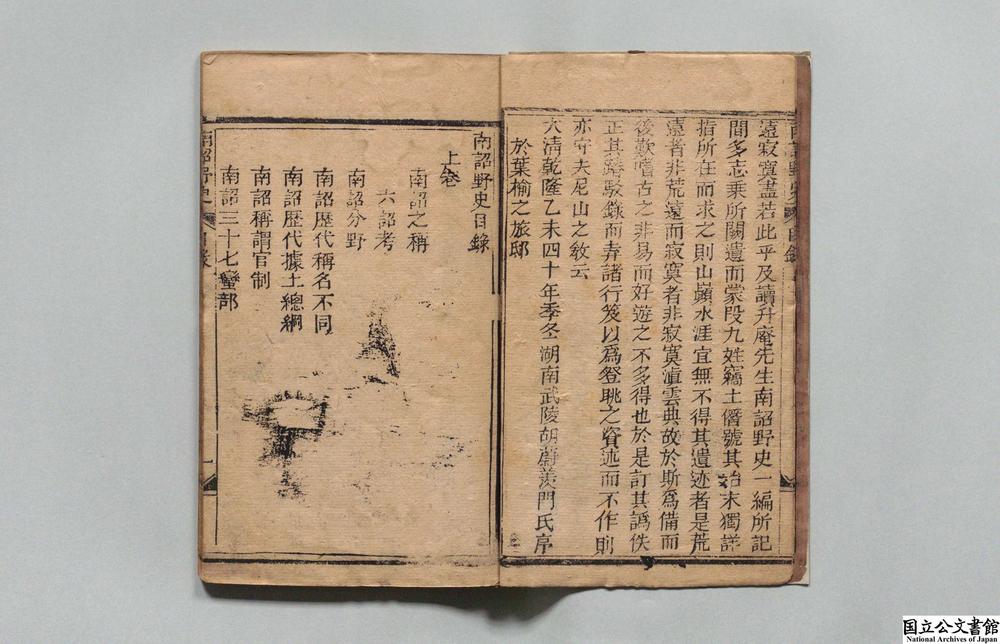 遠寂寞盡若此乎及讀升庵先生南詔野史一編所記
間多志乘所闕遺而蒙段九姓竊土僭號其始末獨詳
指所在而求之則山巔水涯宜無不得其遺迹者是荒
遠者非荒遠而寂寞者非寂寞滇雲典故於斯爲備而
後歎嗜古之非易而好遊之不多得也於是訂其譌佚
正其踳駁錄而弆諸行笈以爲登眺之資述而不作則
亦守夫尼山之敎云
大清乾隆乙未四十年季冬湖南武陵胡蔚羨門氏序
於葉榆之旅邸
南詔野史目錄
上卷
南詔之稱
六詔考
南詔分野
南詔歷代稱名不同
南詔歷代據土總綱
南詔稱謂官制
南詔三十七蠻部
南詔野史
目錄
一
国立公文書館
National Archives of Japan